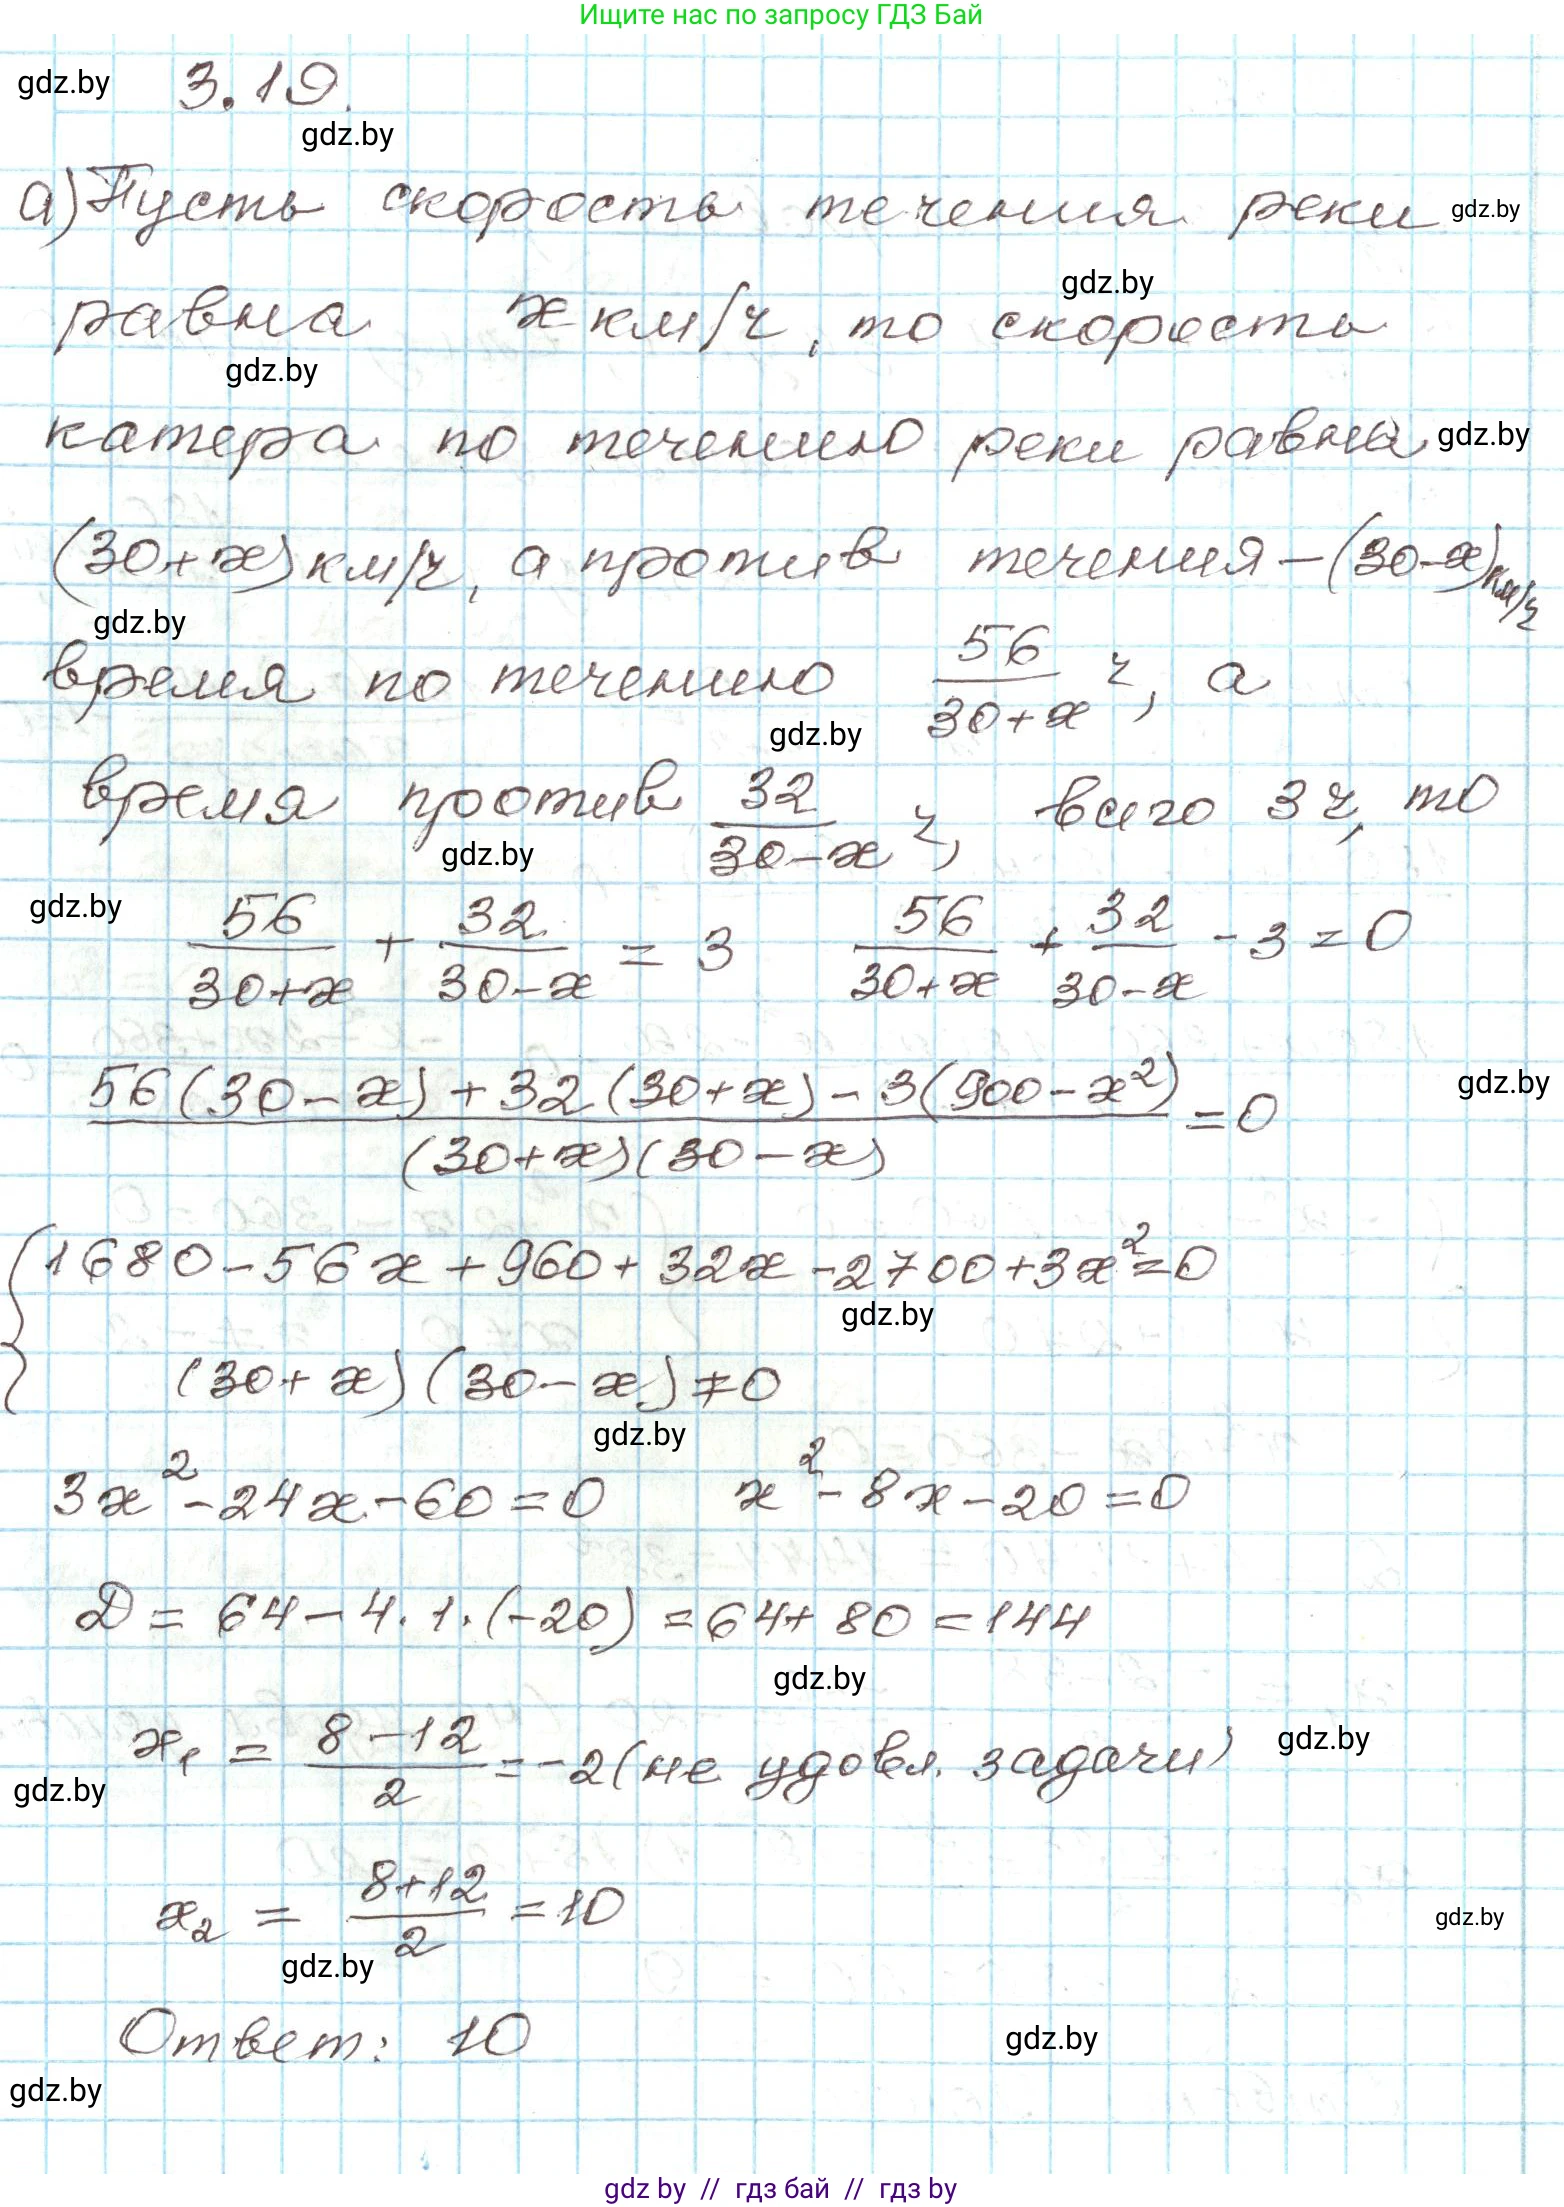 Ищите нас по запросу ГДЗ Бай
gdz.by 3.19.
gdz.by
а) Пусть скорость течения реки gdz.by
gdz.by
равна x км/ч, то скорость
gdz.by
катера по течению реки равна gdz.by
(30+x) км/ч, а против течения – (30-x) км/ч
gdz.by
время по течению 56/(30+x) ч, а
gdz.by
время против 32/(30-x) ч, всего 3 ч, то
gdz.by
gdz.by
56/(30+x) + 32/(30-x) = 3 56/(30+x) + 32/(30-x) - 3 = 0
(56(30-x) + 32(30+x) - 3(900-x²))/((30+x)(30-x)) = 0 gdz.by
{ 1680 - 56x + 960 + 32x - 2700 + 3x² = 0
gdz.by
(30+x)(30-x) ≠ 0
gdz.by
3x² - 24x - 60 = 0 x² - 8x - 20 = 0
D = 64 - 4·1·(-20) = 64 + 80 = 144
gdz.by
x₁ = (8-12)/2 = -2 (не удовл. задачи) gdz.by
gdz.by
x₂ = (8+12)/2 = 10
gdz.by
gdz.by
Ответ: 10 gdz.by
gdz.by
gdz by // гдз бай // гдз by